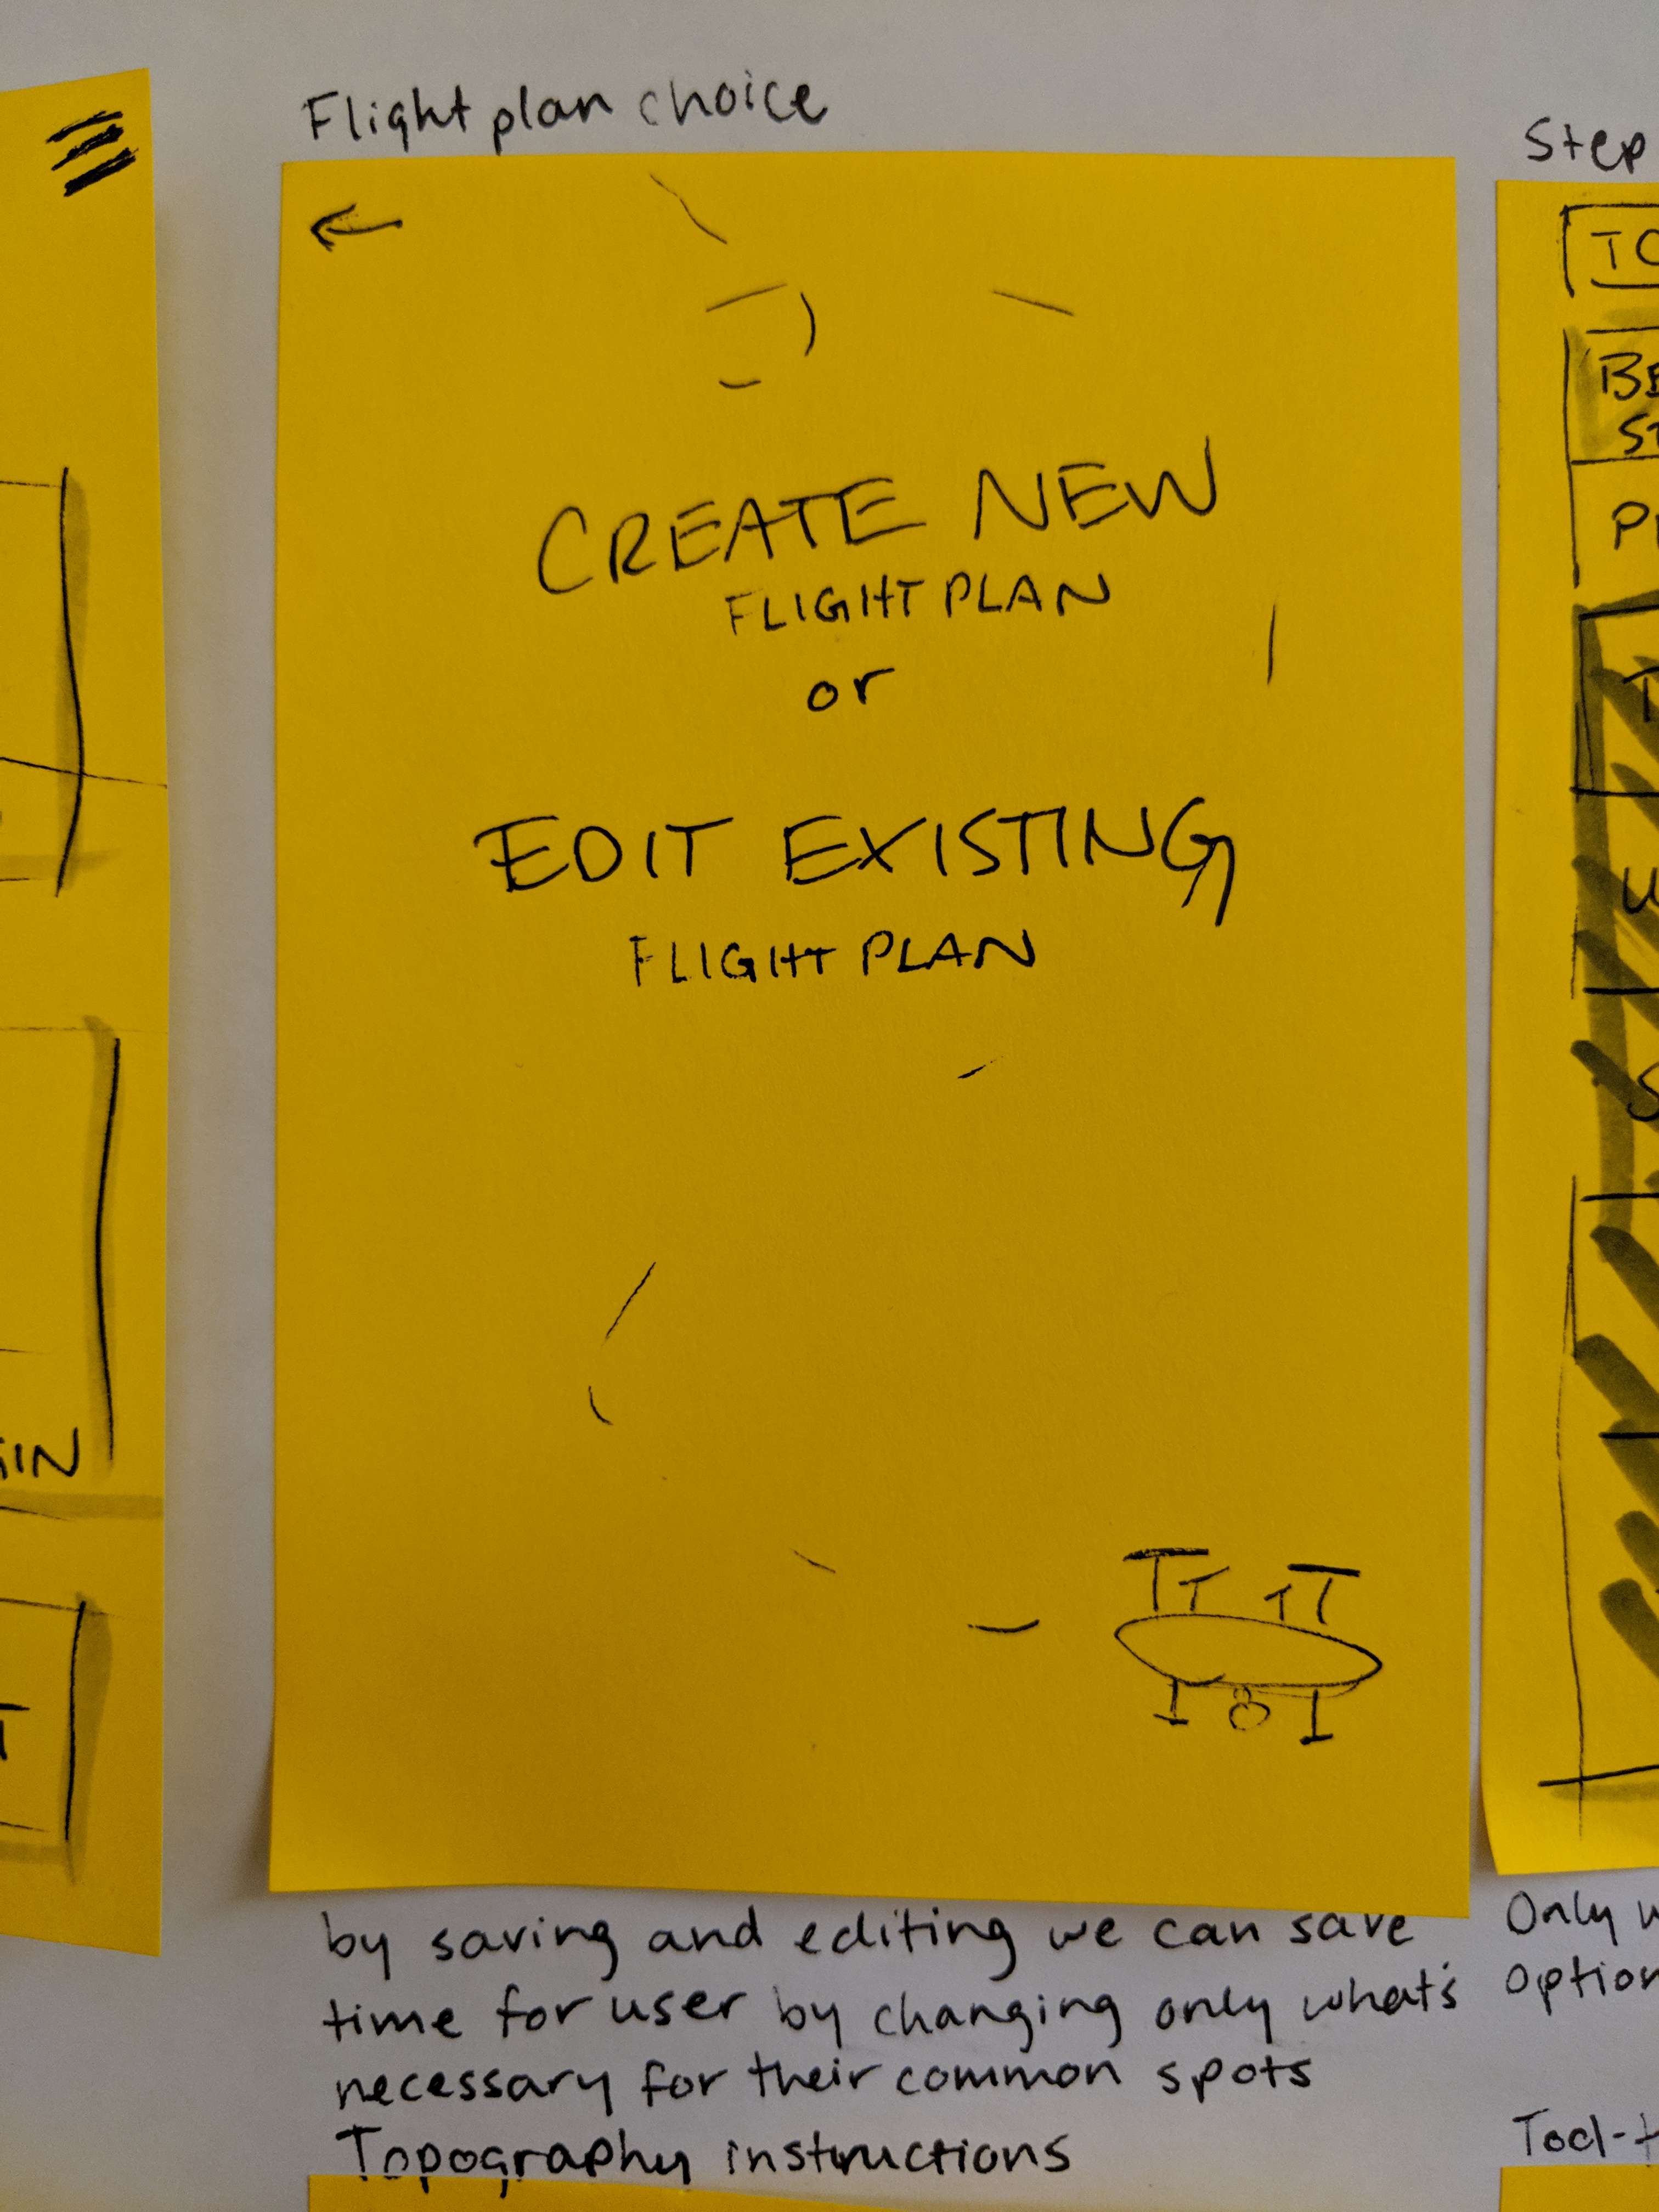 Flight plan choice
CREATE NEW
FLIGHT PLAN
or
EDIT EXISTING
FLIGHT PLAN
by saving and editing we can save
time for user by changing only what's
necessary for their common spots
Topography instructions
Step
Only
Option